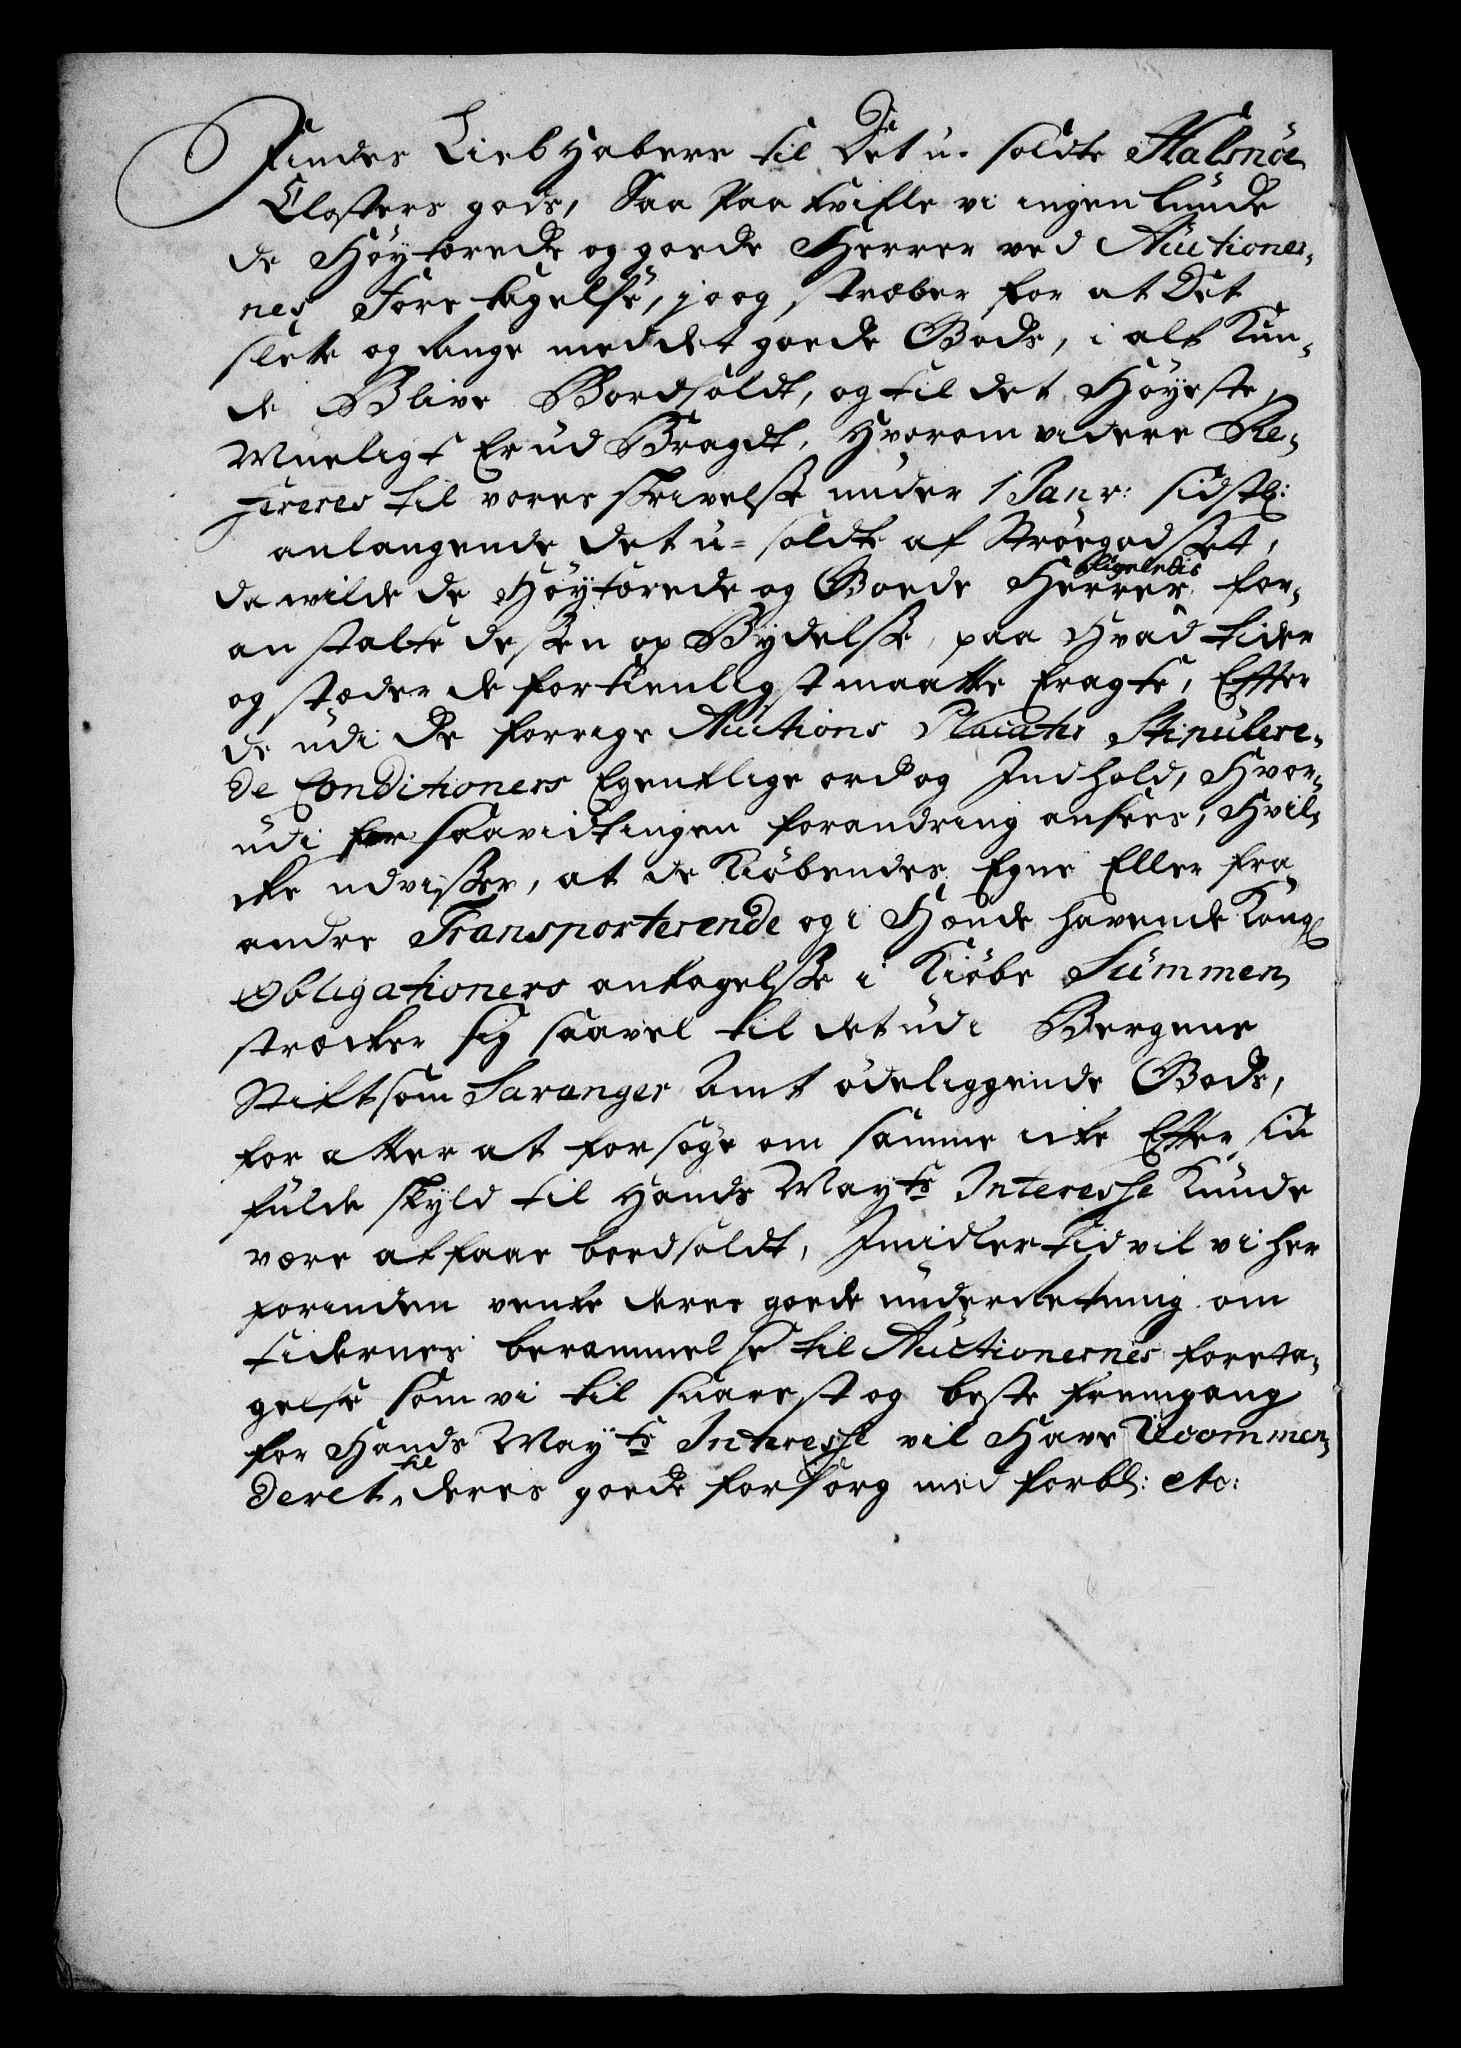 Findes Liebhabere til Det u-soldte Halsnöe
Closters gods, Saa paa tvifle vi ingenlunde
de Höytærede og goede Herrer ved Auctioner-
nes Foretagelse, jo og stræber for at Det
slette og ringe med det goede Gods, i alt Kun-
de Blive Bordsoldt, og til det Höyeste
Mueligt Er ud Bragdt, Hvorom videre Re-
fereres til vores skrivelse under 1 Janr: sidstl:
anlangende det u-soldte af Ströegodset,
da wilde de Höytærede og Goede Herrer ligeledis for-
anstalte dessen op Bydelse, paa Hvad tider
og stæder de fortienligst maatte Eragte, Effter
de udi de forrige Auctions Placater Stipulere-
de Conditioners Egentlige ord og Indhold, Hvor-
udi for saavidt ingen forandring ansees, Hvil-
cke udvisser, at de Kiöbendes Egne Eller fra
andre Transporterende og i Hænde havende Kongl
Obligationers antagelse i Kiöbe Summen
strecker sig saavel til det udi Bergens
Stift som Stavanger Amt ödeliggende Gods,
for atter at forsöge om samme icke Effter sin
fulde skyld til Hands Mayts Interesse Kunde
være at faae bordsoldt, Imidlertid vil vi her
forinden vente deres goede underretning om
tidernes berammelse til Auctionernes foreta-
gelse som vi til snarest og beste fremgang
for Hands Mayts Interesse vil Have Recommen-
deret til deres goede forsorg med forbl: etc: